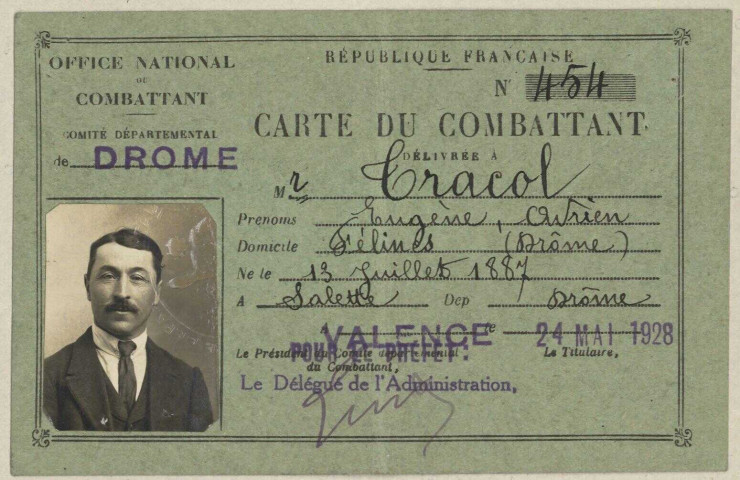 OFFICE NATIONAL
DU
COMBATTANT
COMITÉ DÉPARTEMENTAL
de DROME
RÉPUBLIQUE FRANÇAISE
N° 454
CARTE DU COMBATTANT
DÉLIVRÉE A
Mr Tracol
Prenoms Eugène, Adrien
Domicile Félines (Drôme)
Ne le 13 Juillet 1887
A Salette Dep Drôme
A VALENCE le 24 MAI 1928
Le Président du Comité départemental
du Combattant,
POUR LE PREFET:
Le Titulaire,
Le Délégué de l'Administration,